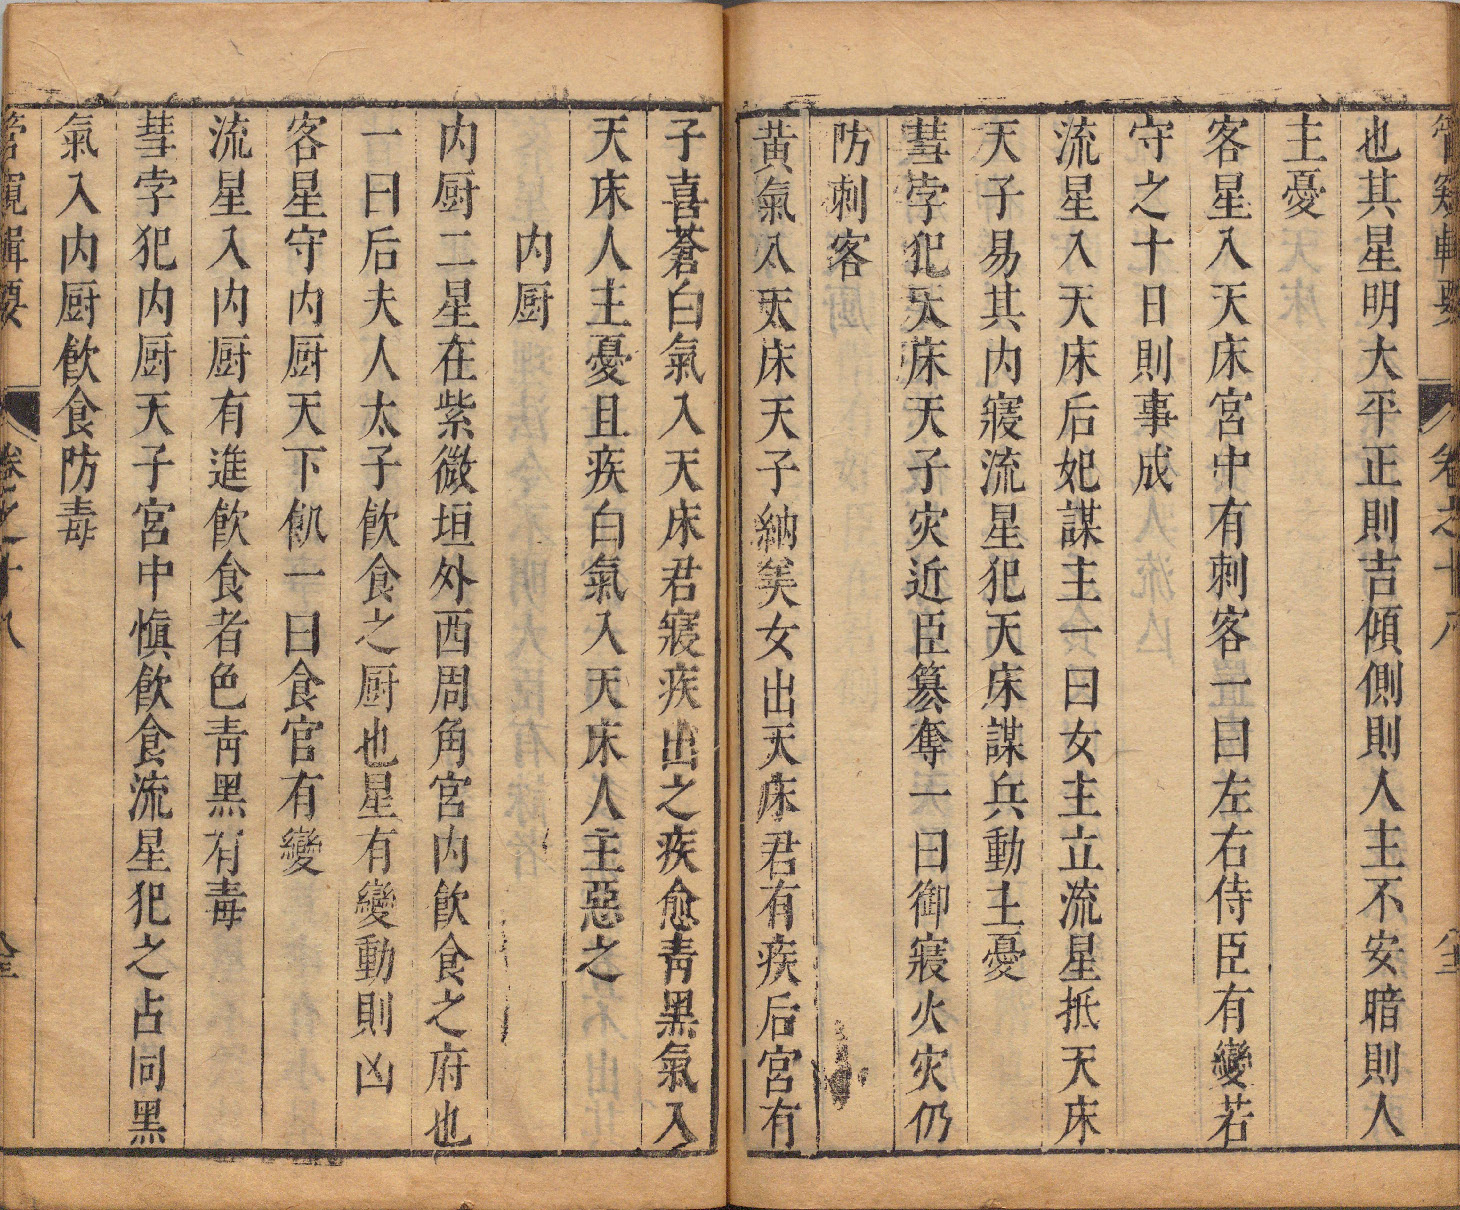 管窺輯要 卷之十八
也其星明大平正則吉傾側則人主不安暗則人
主憂
客星入天床宮中有刺客一曰左右侍臣有變若
守之十日則事成
流星入天床后妃謀主一曰女主立流星抵天床
天子易其内寢流星犯天床謀兵動主憂
彗孛犯天床天子灾近臣篡奪一曰御寢火灾仍
防刺客
黃氣入天床天子納美女出天床君有疾后宮有
子喜蒼白氣入天床君寢疾出之疾愈靑黑氣入
天床人主憂且疾白氣入天床人主惡之
内厨
内厨二星在紫微垣外西周角宮内飮食之府也
一曰后夫人太子飮食之厨也星有變動則凶
客星守内厨天下飢一曰食官有變
流星入内厨有進飮食者色靑黑有毒
彗孛犯内厨天子宮中愼飮食流星犯之占同黑
氣入内厨飮食防毒
管窺輯要 卷之十八